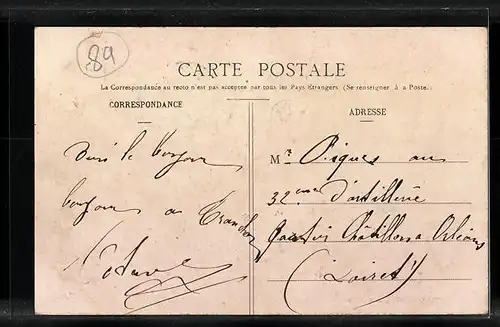 89
CARTE POSTALE
La Correspondance au recto n'est pas acceptée par tous les Pays Etrangers (Se renseigner à la Poste.)
CORRESPONDANCE
ADRESSE
le bonjour
bonjour
Mr Piques au
32eme d'artillerie
Quartier Châtillon à Orléans
(Loiret)